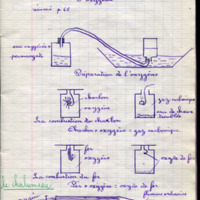 L'oxygène
résumé p 65
eau oxygénée
permanganate
Préparation de l'oxygène
charbon
oxygène
gaz carbonique
eau de chaux
troublée
La combustion du charbon
Charbon + oxygène = gaz carbonique
fer
oxygène
oxyde de fer
La combustion du fer
Fer + oxygène = oxyde de fer